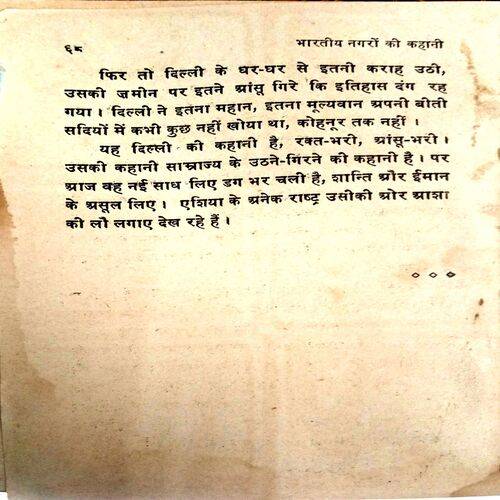 ६८ भारतीय नगरों की कहानी
फिर तो दिल्ली के घर-घर से इतनी कराह उठी,
उसकी ज़मीन पर इतने आंसू गिरे कि इतिहास दंग रह
गया। दिल्ली ने इतना महान, इतना मूल्यवान अपनी बीती
सदियों में कभी कुछ नहीं खोया था, कोहनूर तक नहीं।
यह दिल्ली की कहानी है, रक्त-भरी, आंसू-भरी।
उसकी कहानी साम्राज्य के उठने-गिरने की कहानी है। पर
आज वह नई साध लिए डग भर चली है, शान्ति और ईमान
के असूल लिए। एशिया के अनेक राष्ट्र उसीकी ओर आशा
की लौ लगाए देख रहे हैं।